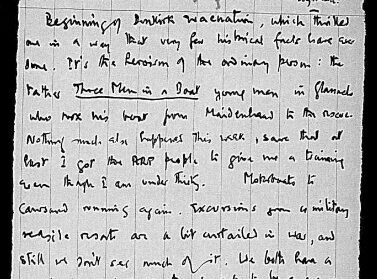 Beginning of Dunkirk evacuation, which thrilled
me in a way that very few historical facts have ever
done. It's the heroism of the ordinary person : the
rather Three Men in a Boat young men in glasses
who took his boat from Maidenhead to the rescue.
Nothing much else happened this week, save that at
last I got the ARP people to give me a training
even though I am under thirty. Motorboats to
running again. Excursions from a military
resort are a bit curtailed in war, and
still we don't see much of it. We both have a